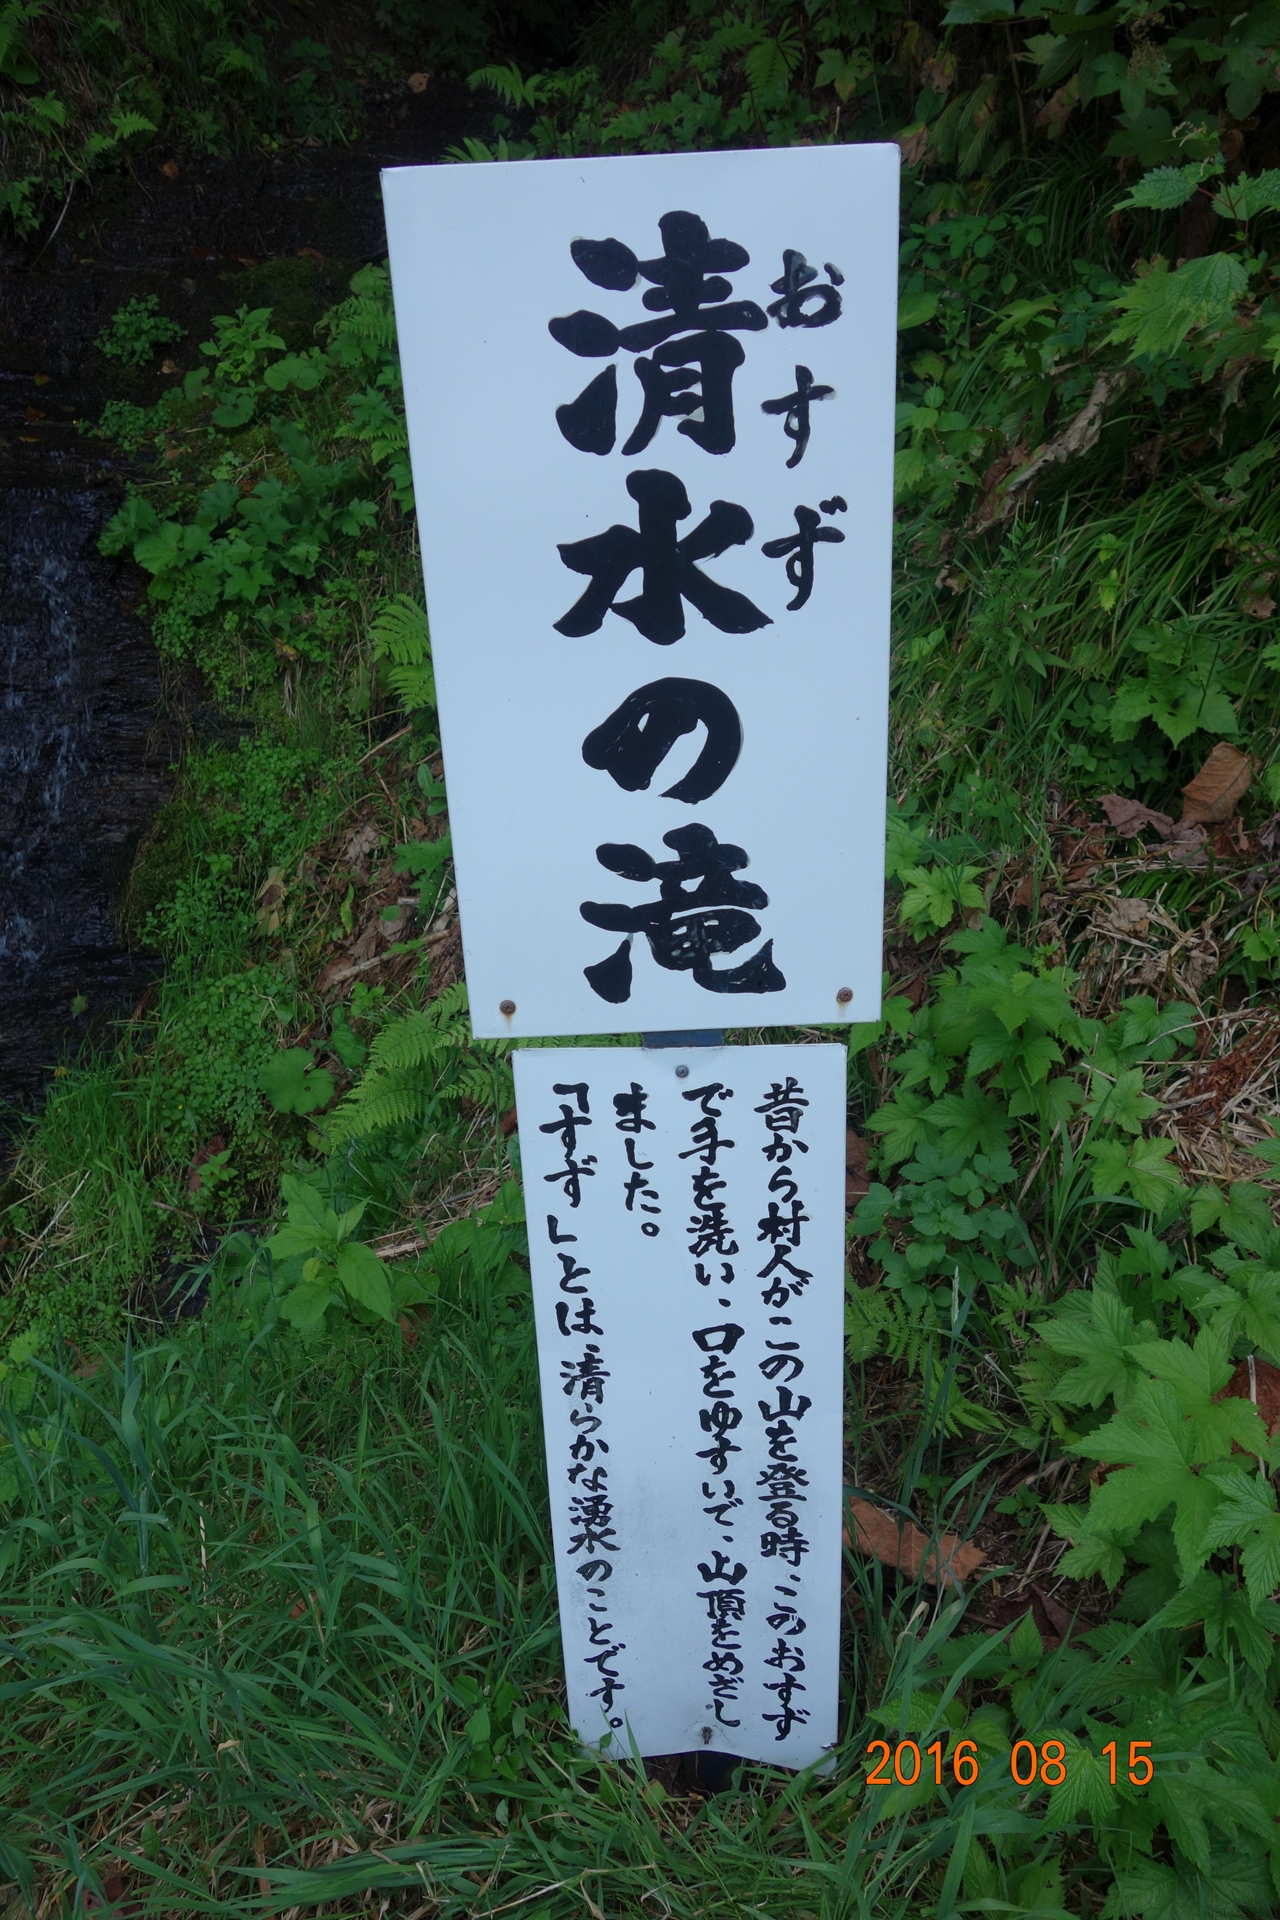 清水の滝
おすず
昔から村人がこの山を登る時、このおすず
で手を洗い、口をゆすいで、山頂をめざし
ました。
「すず」とは、清らかな湧水のことです。
2016 08 15